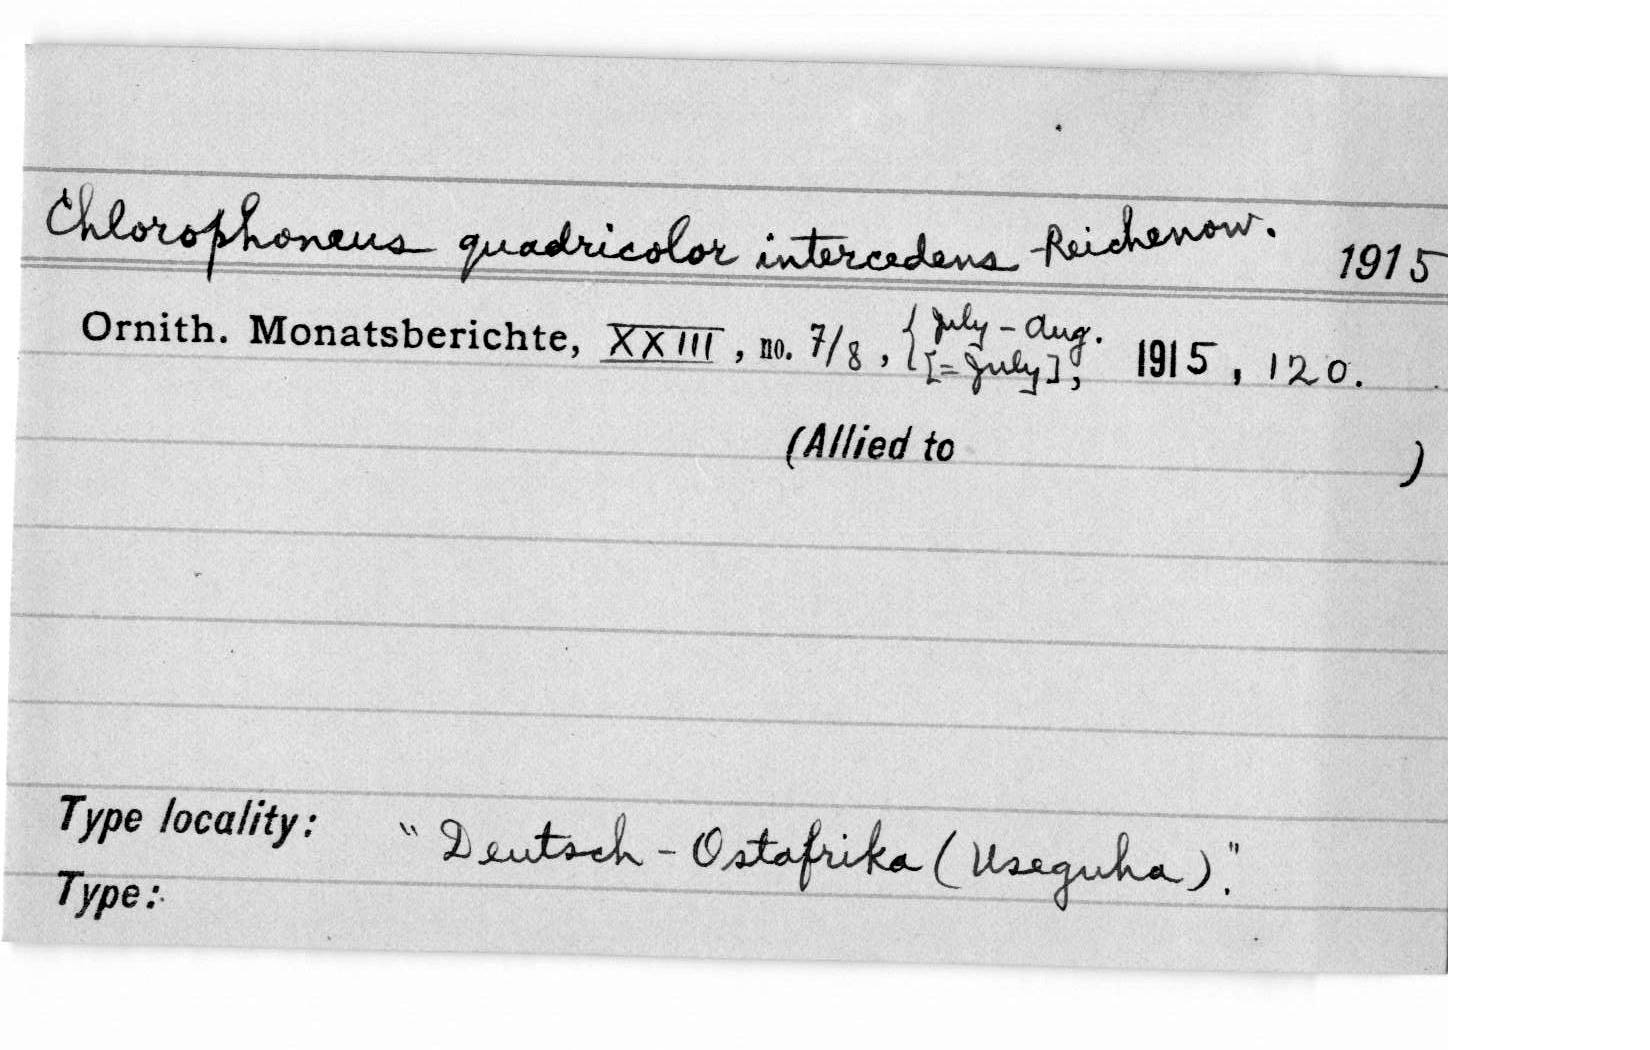 Chlorophoneus quadricolor intercedens Reichenow. 1915
Ornith. Monatsberichte, XXIII, no. 7/8, { July - Aug. [= July], 1915, 120.
(Allied to )
Type locality: "Deutsch-Ostafrika (Useguha)."
Type: